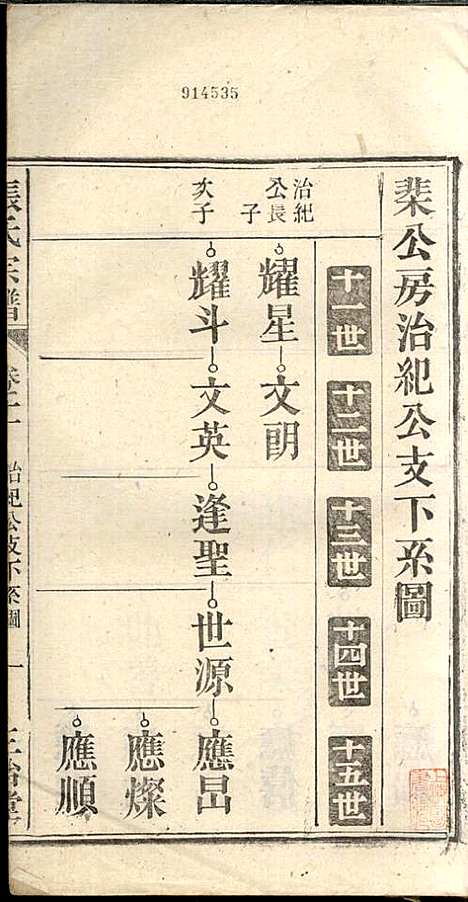 914535
棐公房治紀公支下系圖
十一世 十二世 十三世 十四世 十五世
治紀
公長
子
耀星 文朗
次子
耀斗 文英 逢聖 世源 應昌
應燦
應順
張氏宗譜 卷之二 治紀公支下系圖 一